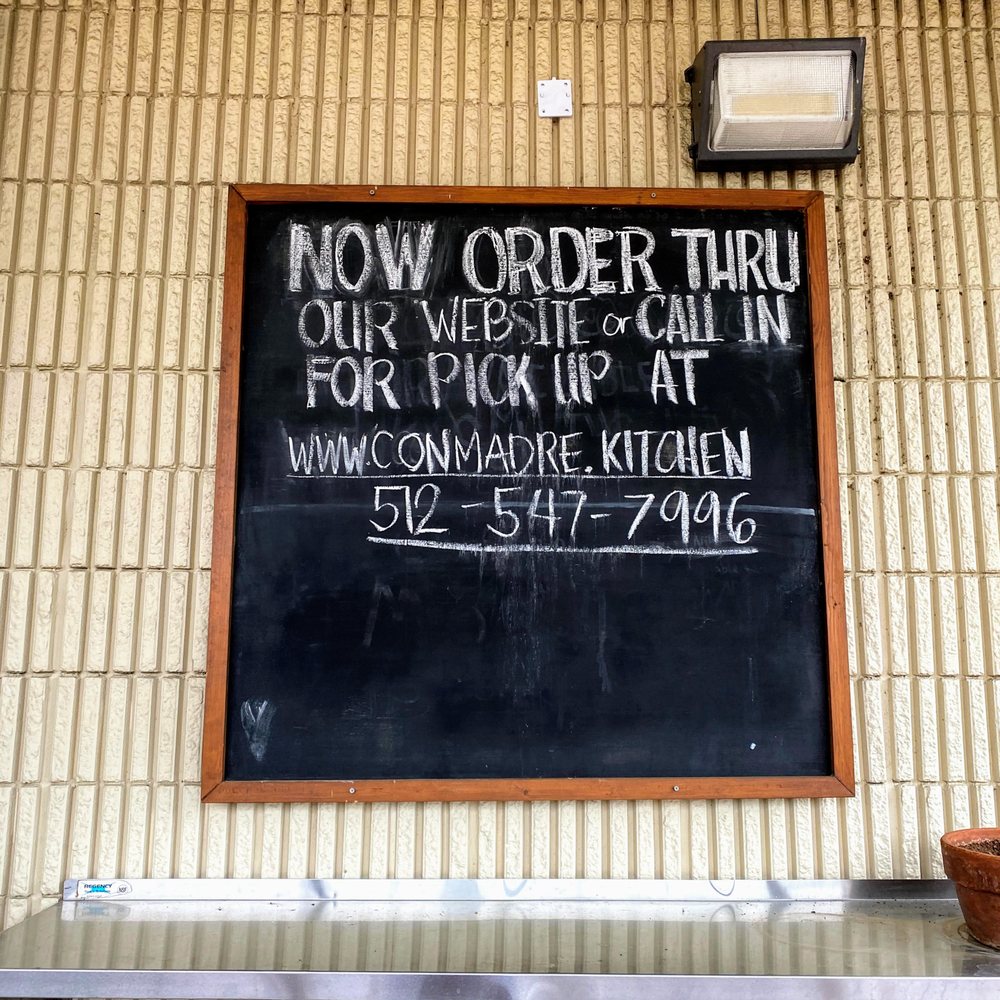 NOW ORDER THRU
OUR WEBSITE or CALL IN
FOR PICK UP AT
WWW.CONMADRE.KITCHEN
512-547-7996
REGENCY